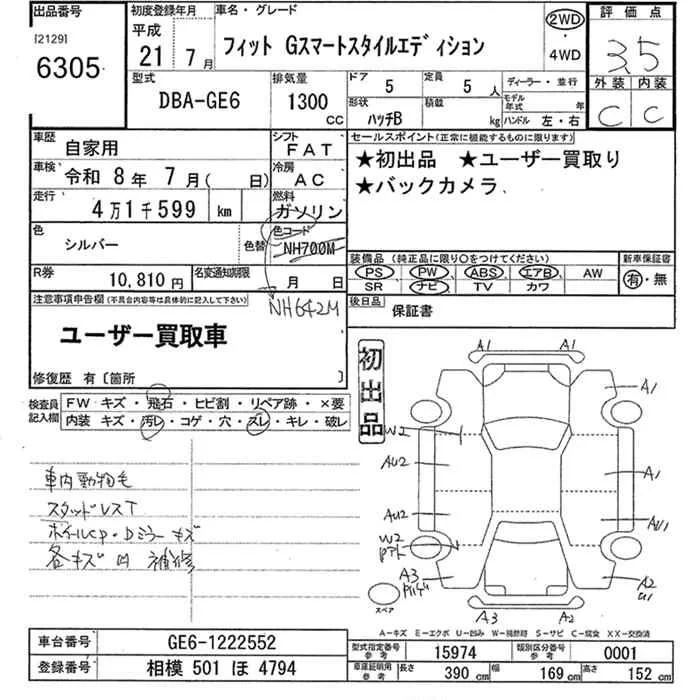 出品番号 初度登録年月 車名・グレード 2WD 評価点
[2129] 平成
6305 21年 7月 フィット Gスマートスタイルエディション ・4WD 3.5
型式 排気量 ドア 5 定員 5人 ディーラー・並行 外装 内装
DBA-GE6 1300cc 形状 ハッチB 積載 kg モデル年式 年 ハンドル 左・右 C C
車歴 自家用 シフト FAT セールスポイント(正常に機能するものに限ります)
車検 令和 8年 7月( 日) 冷房 AC ★初出品 ★ユーザー買取り
走行 4万1千599 km 燃料 ガソリン ★バックカメラ
色 シルバー 色替 色コード NH700M
NH642M
装備品(純正品に限り○をつけてください) 新車保証書
PS PW ABS エアB AW 有・無
SR ナビ TV カワ
R券 10,810円 名変通知期限 月 日
注意事項申告欄(不具合内容等は具体的に記入して下さい) 後日品 保証書
ユーザー買取車
修復歴 有〔箇所 〕
初出品
検査員記入欄 FW キズ・飛石・ヒビ割・リペア跡・×要
内装 キズ・汚レ・コゲ・穴・スレ・キレ・破レ
車内動物毛
スタッドレスT
ホイールcp・Dミラーキズ
各キズ凹 補修
A1 A1
A1
W2
AU2 A1
AU2 AU1
W2
A3 A2
A3 A2
スペア
A−キズ E−エクボ U−凹み W−補修跡 S−サビ C−腐食 XX−交換済
車台番号 GE6-1222552
登録番号 相模 501 ほ 4794
型式指定番号 参考 15974 類別区分番号 参考 0001
車庫証明用 参考 長さ 390cm 幅 169cm 高さ 152cm